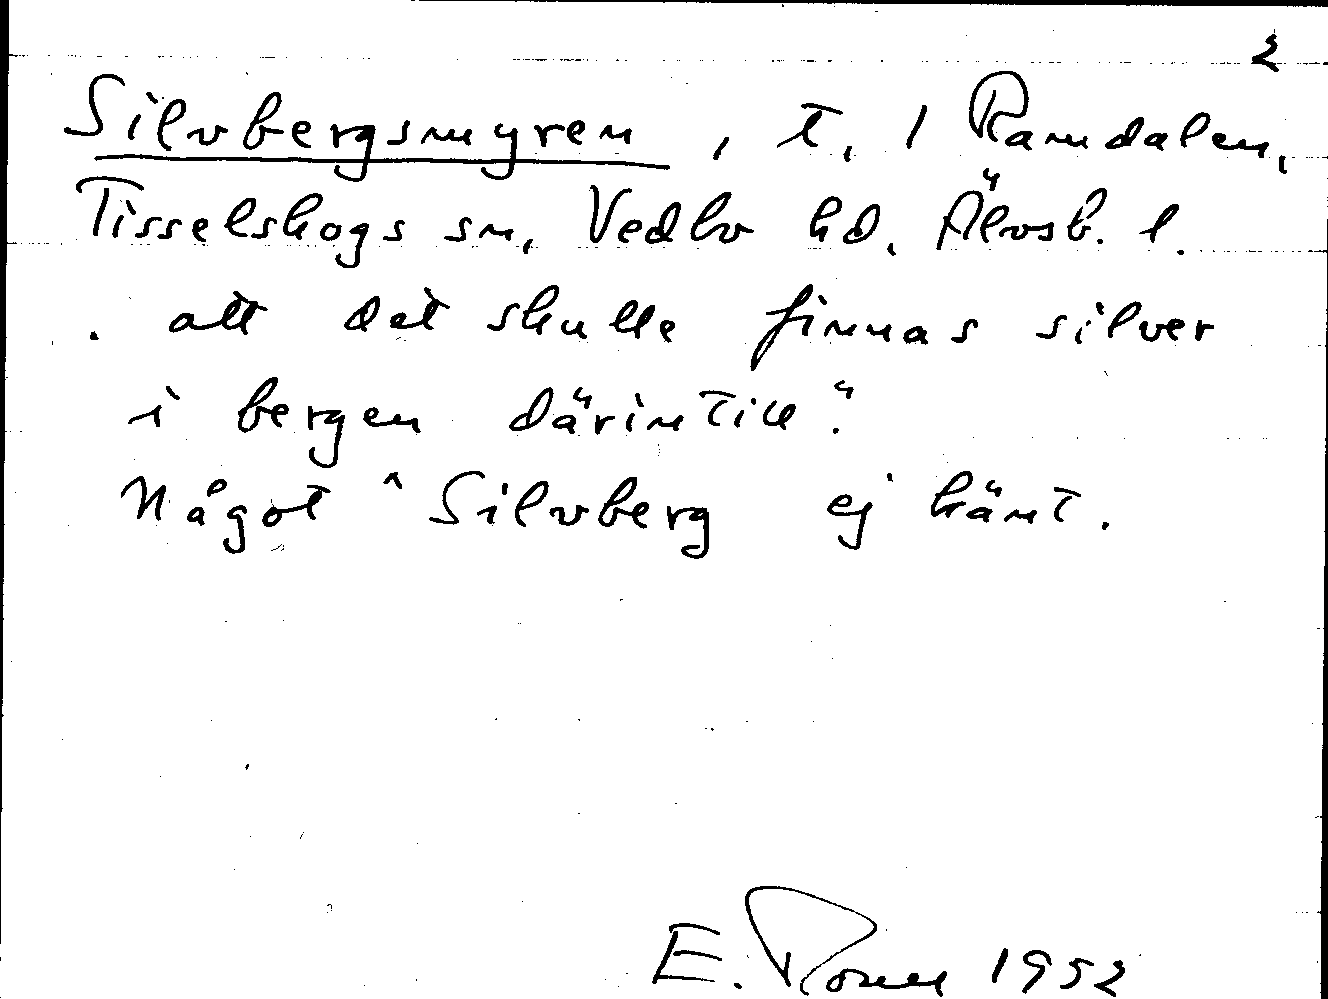 2
Silvbergsmyren, t. / Ramdalen,
Tisselskogs sn, Vedbo hd. Älvsb. l.
. att det skulle finnas silver
i bergen därintill".
Något ^ Silvberg ej känt.
E. 1952